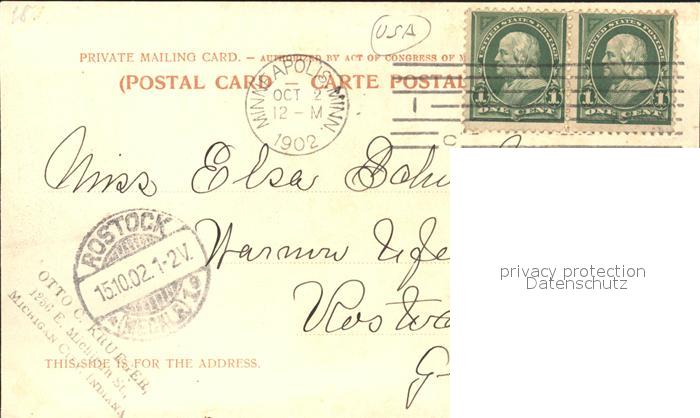 USA
PRIVATE MAILING CARD. – AUTHORIZED BY ACT OF CONGRESS OF M
(POSTAL CARD – CARTE POSTAL
UNITED STATES POSTAGE
1 1
ONE CENT
UNITED STATES POSTAGE
1 1
ONE CENT
MINNEAPOLIS, MINN.
OCT 2
12 – M
1902
Miss Elsa
Warnow Ufe
Rosto
G
ROSTOCK
15.10.02.1-2V.
(MECKLB)
OTTO C. KRUEGER,
1236 E. MICHIGAN ST.,
MICHIGAN CITY, INDIANA
THIS SIDE IS FOR THE ADDRESS.
privacy protection
Datenschutz